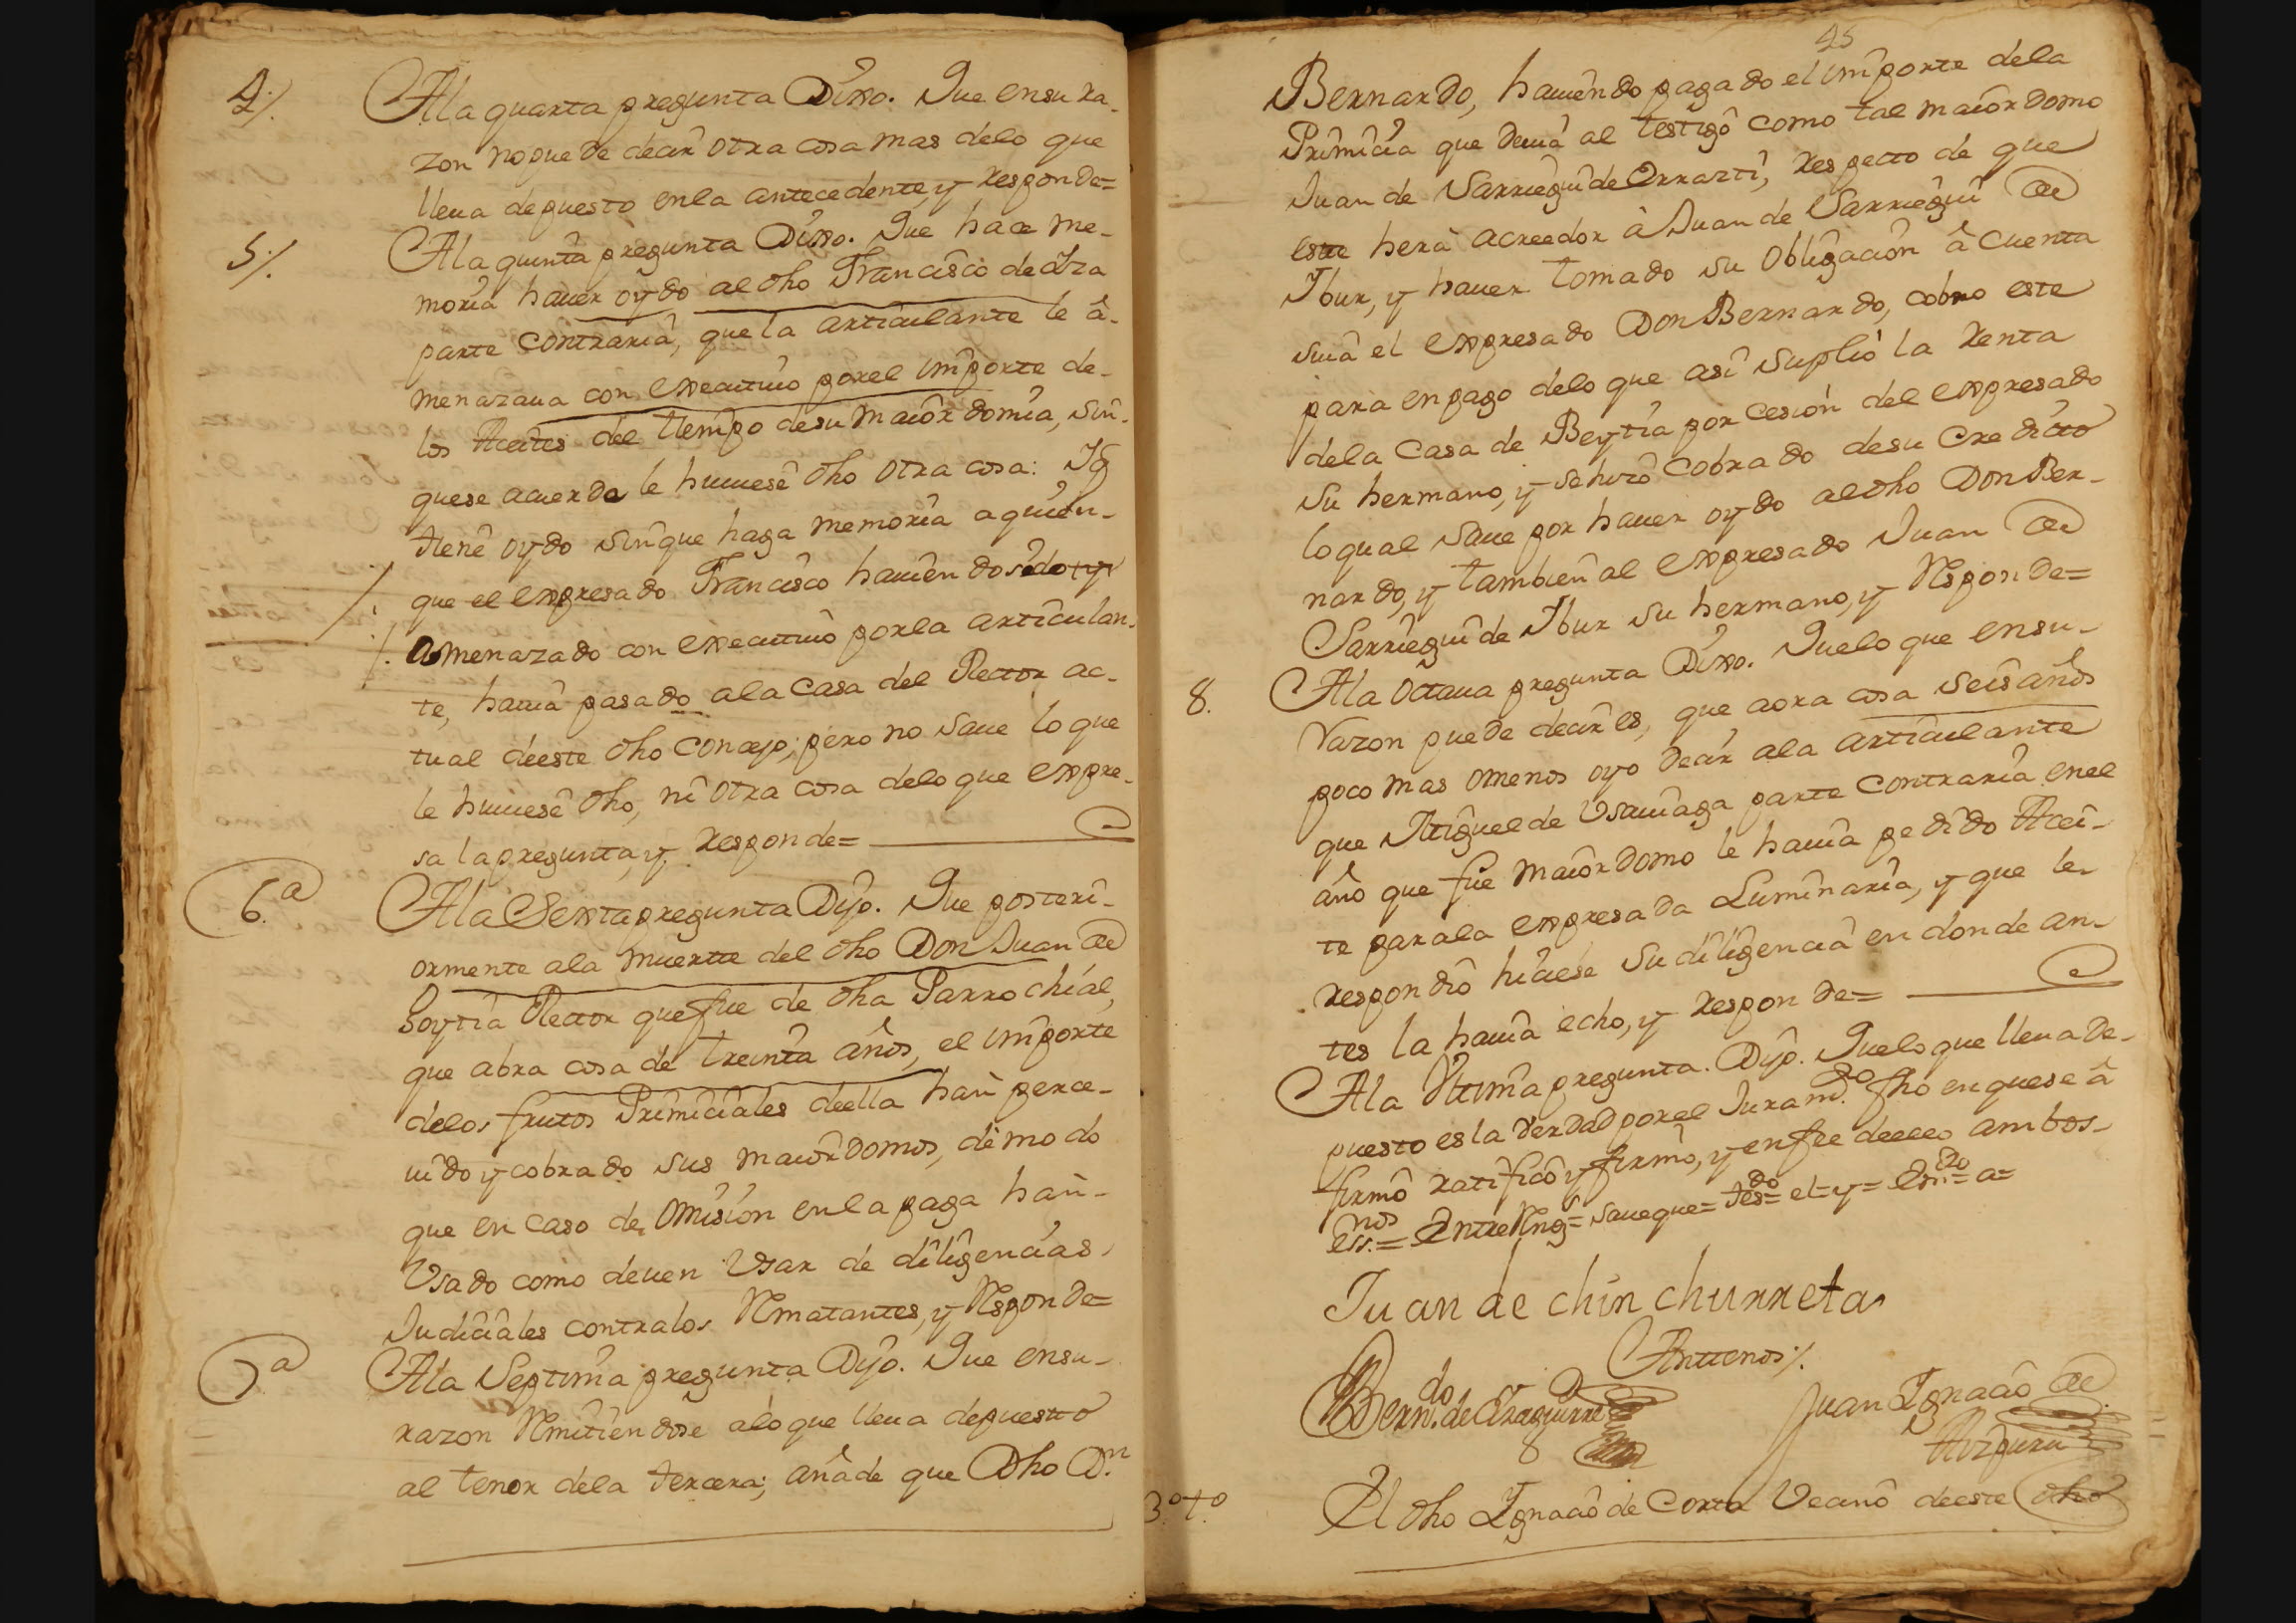 4./. A la quarta pregunta Dixo. Que en su ra-
zon no puede decir otra cosa mas delo que
lleua depuesto enla antecedente, y responde=
5./. A la quinta pregunta Dixo. Que hace me-
moria hauer oydo al dho Francisco de Arza
parte contraria, que la articulante le à-
menazaua con executiuo porel importe de-
los Aceites del tiempo desu maiordomia, sin-
quese acuerda le huuiese dho otra cosa: Yq
tiene oydo sinque haga memoria aquien-
que el expresado Francisco hauiendosido
Amenazado con executiuo porla articulan-
te, hauia pasado ala Casa del Rector ac-
tual deeste dho Concejo; pero no saue lo que
le huuiese dho, ni otra cosa delo que expre-
sa la pregunta, y responde=
6.ª A la Sexta pregunta Dijo. Que posteri-
ormente ala muerte del dho Don Juan de
Soytia Rector que fue de dha Parrochial,
que abra cosa de treinta años, el importe
delos frutos Primiciales deella han perce-
uido y cobrado sus maiordomos, de modo
que en caso de omision enla paga han-
Usado como deuen Usar de diligencias
Judiciales contralos Rmatantes, y Rsponde=
7ª A la Septima pregunta Dijo. Que ensu-
razon Rmitiendose alo que lleua depuesto
al tenor dela tercera; añade que Dho Dn.
45
Bernardo, hauiendo pagado el importe dela
Primicia que deuia al testigo como tal maiordomo
Juan de Sarriegui de Errazti, respecto de que
este hera acreedor à Juan de Sarriegui de
Ybur, y hauer tomado su obligacion â cuenta
suia el expresado Don Bernardo, cobro este
para en pago delo que asi suplio la renta
dela Casa de Beytia por cesion del expresado
su hermano, y sehizo cobrado desu Credicto
loqual saue por hauer oydo aldho Don Ber-
nardo, y tambien al expresado Juan de
Sarriegui de Ybur su hermano, y Rsponde=
8. A la Octaua pregunta Dixo. Quelo que ensu-
razon puede decir es, que aora cosa seis años
poco mas omenos oyo decir ala articulante
que Miguel de Usauiaga parte contraria enel
año que fue maiordomo le hauia pedido Acei-
te parala expresada Luminaria, y que le
respondio hiciese su diligencia en donde an-
tes la hauia echo, y responde=
A la Vltima pregunta. Dijo. Quelo que lleua de-
puesto es la verdad porel Juramdo. fho en quese â
firmô ratificô y firmô, y enfee deello ambos-
los essnos.= EntreRngs= saueque= tesdo= el=y= a=
Juan de chinchurreta
Antenos/.
Berndo. de Eizaguirre
Juan Ygnacio de
Aizpuru
3º tº El dho Ygnacio de Corta Vecino deeste dho